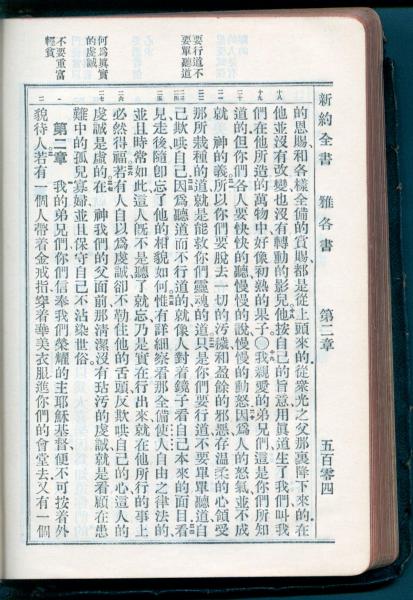 新約全書 雅各書 第二章 五百零四
要行道不
要單聽道
何爲真實
的虔誠
不要重富
輕貧
十八 十九 二十 二一 二二 二三 二四 二五 二六 二七 一 二
的恩賜和各樣全備的賞賜都是從上頭來的從衆光之父那裏降下來的在
他並沒有改變也沒有轉動的影兒他按自己的旨意用眞道生了我們叫我
們在他所造的萬物中好像初熟的果子〇我親愛的弟兄們這是你們所知
道的但你們各人要快快的聽慢慢的說慢慢的動怒因爲人的怒氣並不成
就 神的義所以你們要脫去一切的污穢和盈餘的邪惡存溫柔的心領受
那所栽種的道就是能救你們靈魂的道只是你們要行道不要單單聽道自
己欺哄自己因爲聽道而不行道的就像人對着鏡子看自己本來的面目看
見走後隨卽忘了他的相貌如何惟有詳細察看那全備使人自由之律法的
並且時常如此這人旣不是聽了就忘乃是實在行出來就在他所行的事上
必然得福若有人自以爲虔誠卻不勒住他的舌頭反欺哄自己的心這人的
虔誠是虛的在 神我們的父面前那清潔沒有玷污的虔誠就是看顧在患
難中的孤兒寡婦並且保守自己不沾染世俗
第二章 我的弟兄們你們信奉我們榮耀的主耶穌基督便不可按着外
貌待人若有一個人帶着金戒指穿着華美衣服進你們的會堂去又有一個